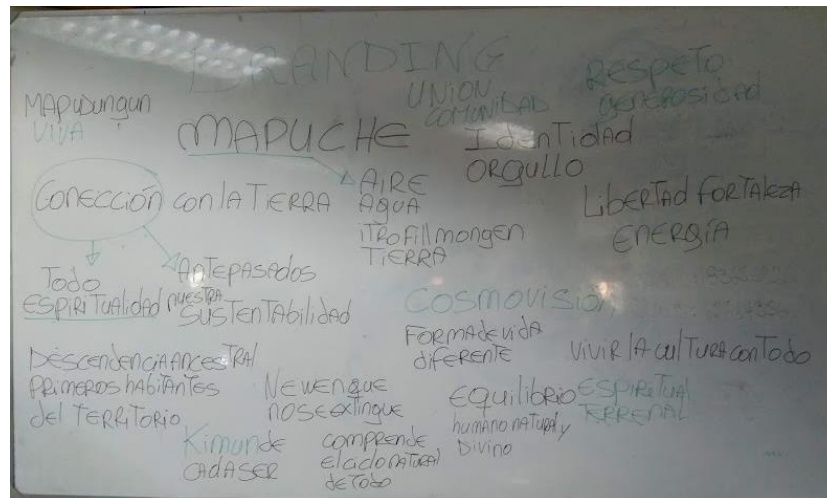 BRANDING
MAPUDUNGUN
VIVA
UNION
COMUNIDAD
RESPETO
GENEROSIDAD
MAPUCHE
IdenTidad
ORGULLO
CONECCIÓN con lA TIERRA
AIRE
AGUA
iTROFillmongen
TIERRA
LibERTAd FORTAlEZA
ENERGÍA
Todo
ESPIRITUAlidAd
ANTEPASAdos
NUESTRA
SUSTENTAbilidAd
COSMOVISION
FORMA dE VidA
diFERENTE
VIVIR lA CUlTURA CON TOdO
DESCENdENCIA ANCESTRAl
PRIMEROS hAbiTANTES
dEl TERRITORIO
NEWEN QUE
NO SE EXTINGUE
EQUilibRIO
humANO NATURAl y
DIVINO
ESPIRITUAl
TERRENAl
Kimun dE
CAdA SER
COMPRENdE
El CiClo NATURAl
dE TOdO